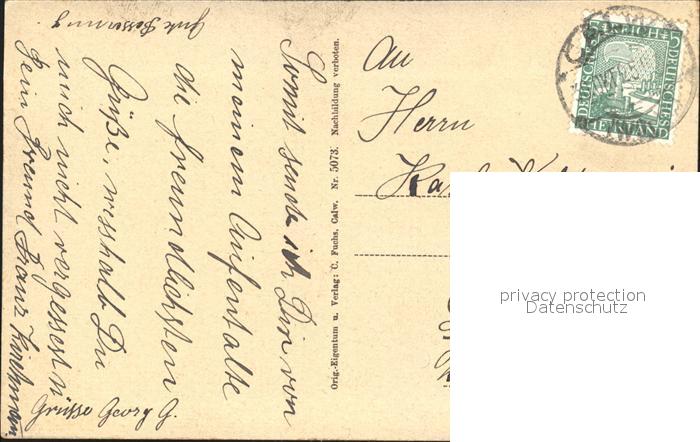 Somit sende ich Dir von
meinem Aufentalte
die freundlichsten
Grüße, weshalb Du
mich nicht vergessest
Dein Freund Franz
Grüsse Georg G.
Gute Besserung
Orig.-Eigentum u. Verlag: C. Fuchs, Calw. Nr. 5073. Nachbildung verboten.
An
Herrn
DEUTSCHES REICH
DEUTSCHES
RHEINLAND
privacy protection
Datenschutz